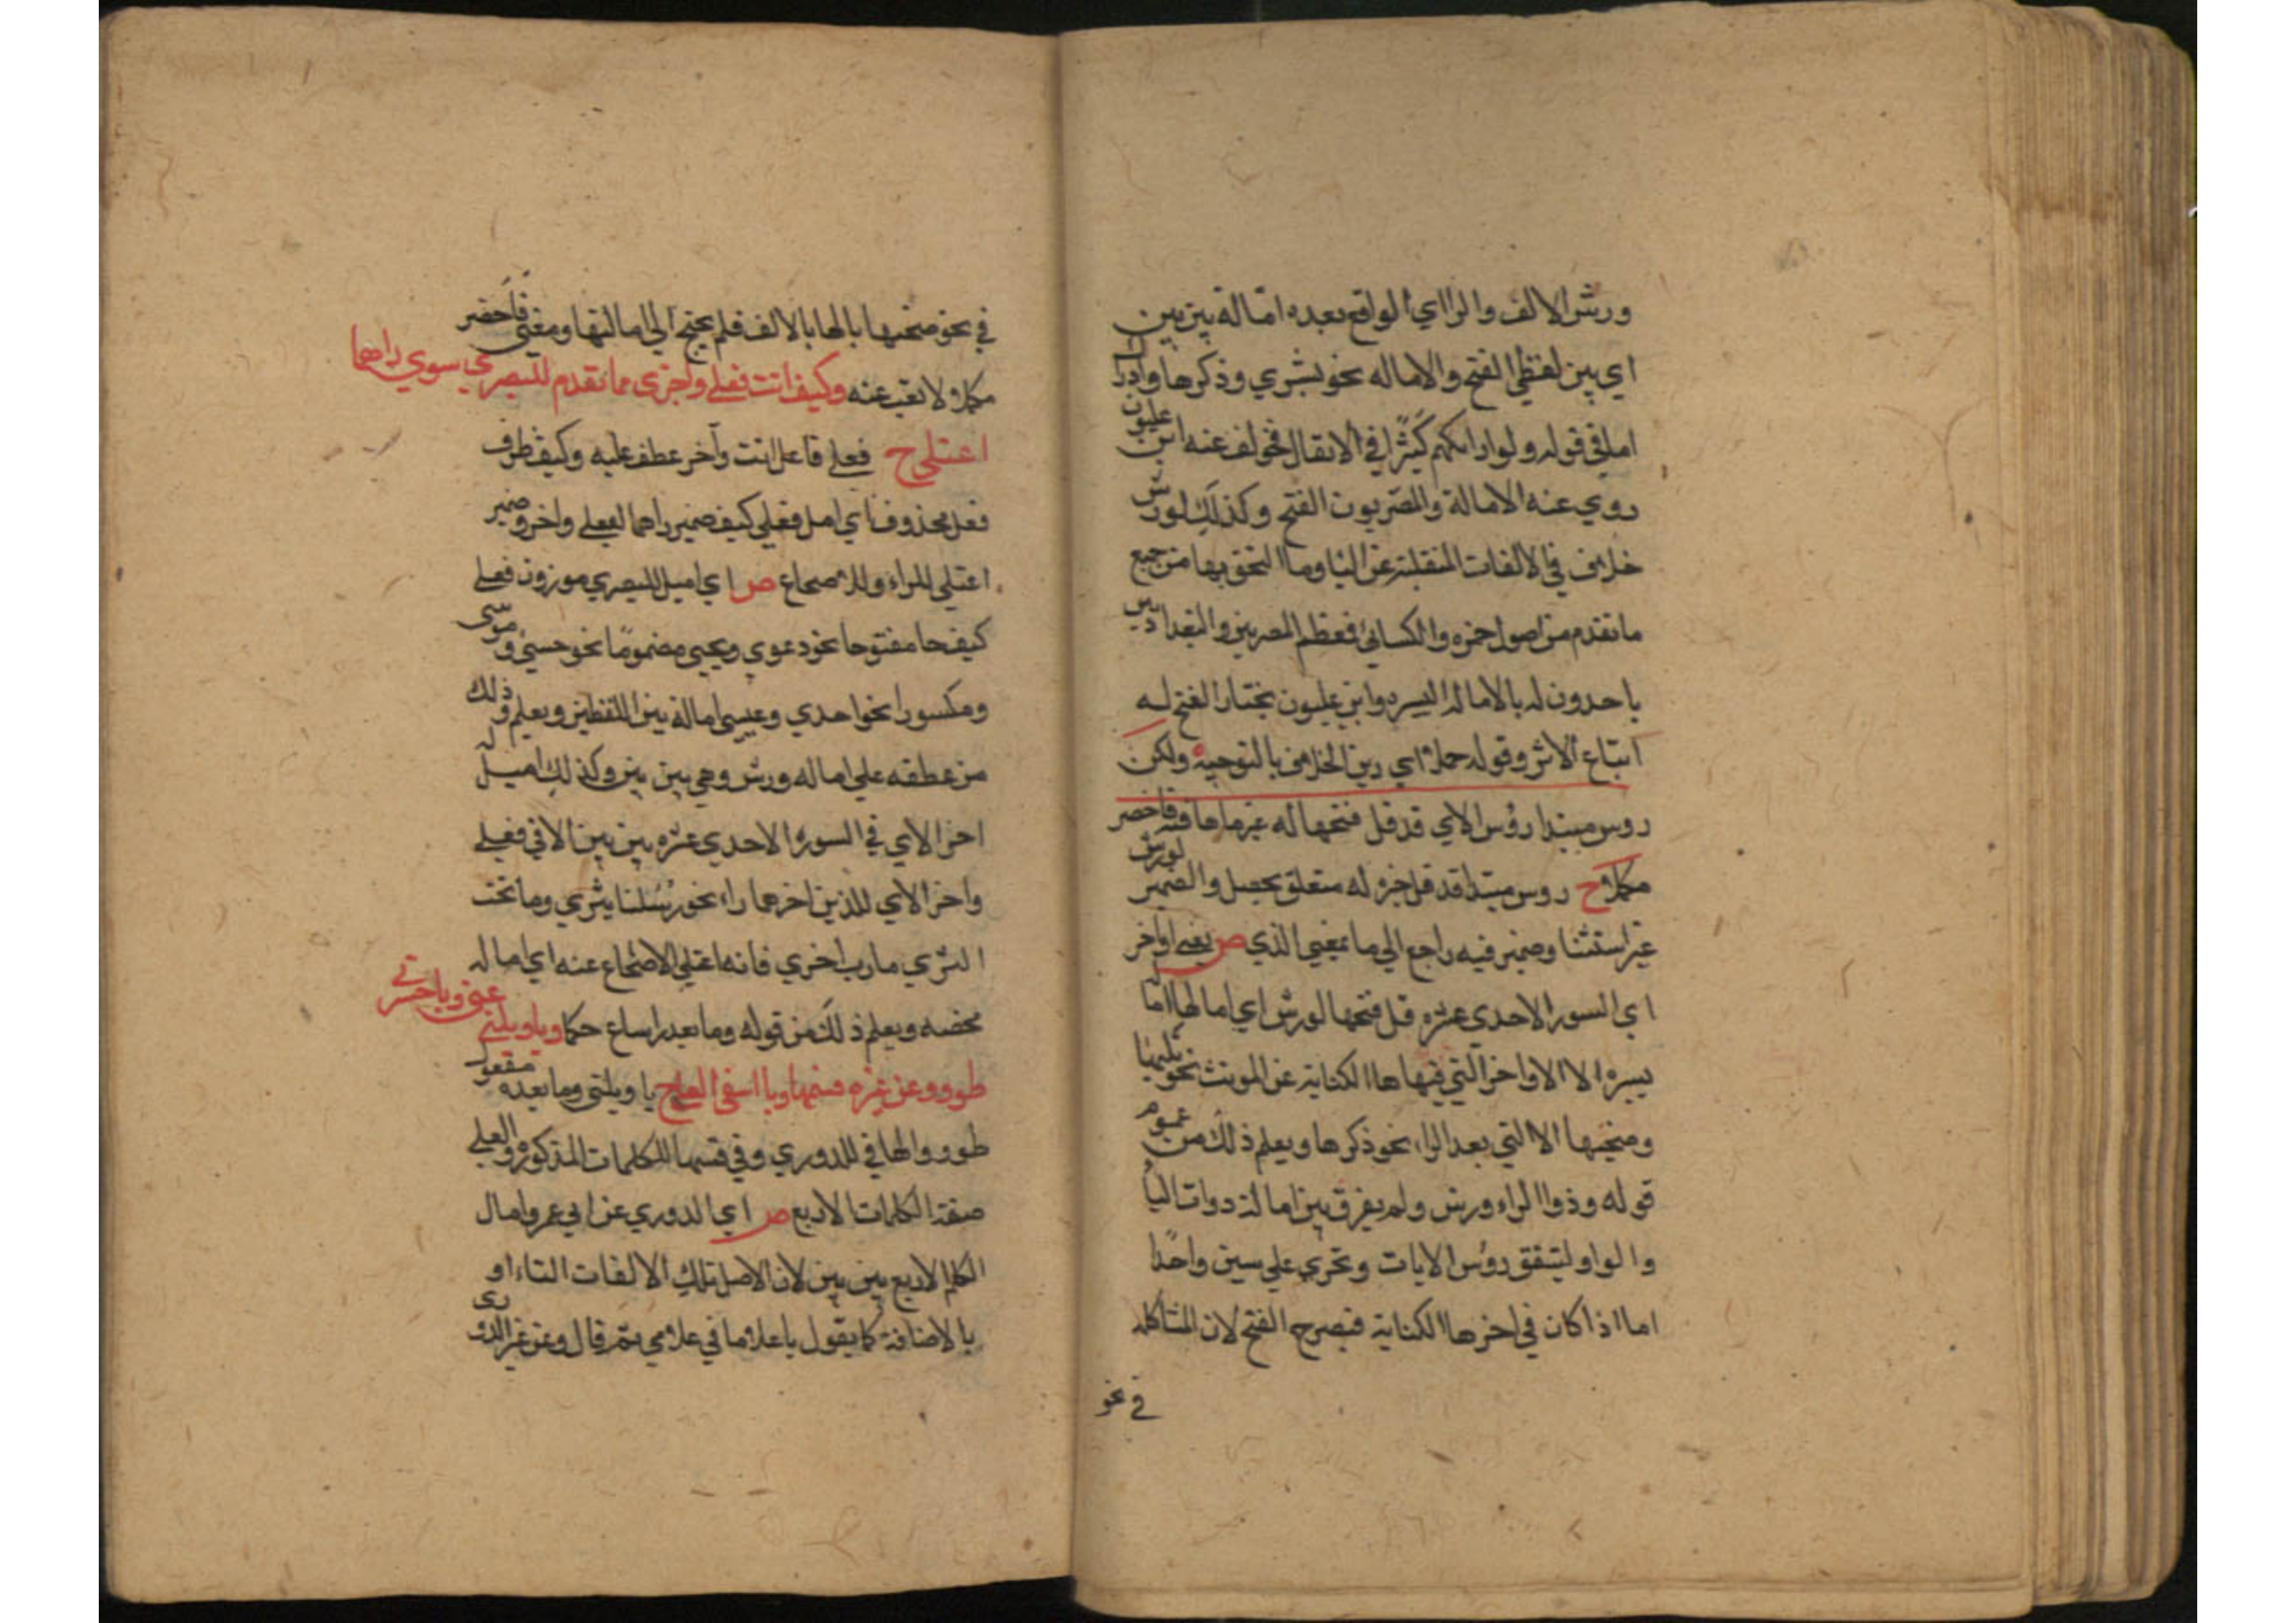 ورش الالف والرااي الواقع بعده امالة بين بين
اي بين لفظي الفتح والاماله نحو بشري وذكرها وادرا
اما في قوله ولو اراكهم كثيرا في الانفال فخولف عنه ابن غلبون
روي عنه الامالة والمصريون الفتح وكذلك لورش
خلاف في الالفات المنقلبة عن اليا وما التحق بها من جميع
ما تقدم من اصول حمزه والكسائي فعظم المصريين والبغداديين
ياخذون له بالاماله اليسيره وابن غلبون يختار الفتح له
اتباع الاثر وقوله حملا اي زين الخلاف بالتوجيه ولكن
روس مبتدا رؤس الاي قد قل فتحها له غير ما ها فيه فاحضر
مكملا ح روس مبتدا قد قل خبره له متعلق بحصل والضمير لورش
غير استثنا وضمير فيه راجع الي ما بمعني الذي ص يعني اواخر
اي السور الاحدي عشره قل فتحها لورش اي امالها امالة
يسيره الا الاواخر التي فيها ها الكناية عن المونث نحو بنيها
وضحيها الا التي بعد الراء نحو ذكرها ويعلم ذلك من عموم
قوله وذوا الراء ورش ولم يفرق بين امالة دوات اليا
والواو ليتفق روس الايات وتجري علي سين واحدا
اما اذا كان في اخرها الكناية فيصرح الفتح لان المشاكله
في نحو
في نحو ضحيها بالها بالالف فلم يحتج الي امالتها ومعني فاحضر
مكملا ولا تغب عنه وكيف اتت فعلي واخري ما تقدم للبصري سوي راهما
اعتلي ح فعلي فاعل اتت وآخر عطف عليه وكيف ظرف
فعل محذوف اي امل فعلي كيف ضمير راهما لفعلي واخر وضمير
اعتلي للراء وللاضجاع ص اي اميل للبصري موزون فعلي
كيف جا مفتوحا نحو دعوي ويحيي مضموما نحو حسني وموسي
ومكسورا نحو احدي وعيسي امالة بين اللفظين ويعلم ذلك
من عطفه علي اماله ورش وهي بين بين وكذلك اميل له
اخر الاي في السورة الاحدي عشره بين بين الا في فعلي
واخر الاي اللذين اخرهما راء نحو رسلنا يثري وما تحت
الثري مارب اخري فانه اعتلي الاضجاع عنه اي اماله
محضه ويعلم ذلك من قوله وما بعد را شاع حكما وياويلتي عني وياحسرتي
طووا وعن غيره قسها ويا اسفي العلا ح يا ويلتي وما بعده مفعول
طووا والها في للدوري وفي قسها للكلمات المذكوره والعلي
صفة الكلمات الاربع ص اي الدوري عن ابي عمرو امال
الكلم الاربع بين بين لان الاصل تلك الالفات التاء او
يا الاضافة كما يقول ياغلاما في غلامي ثم قال وعن غير الدوري